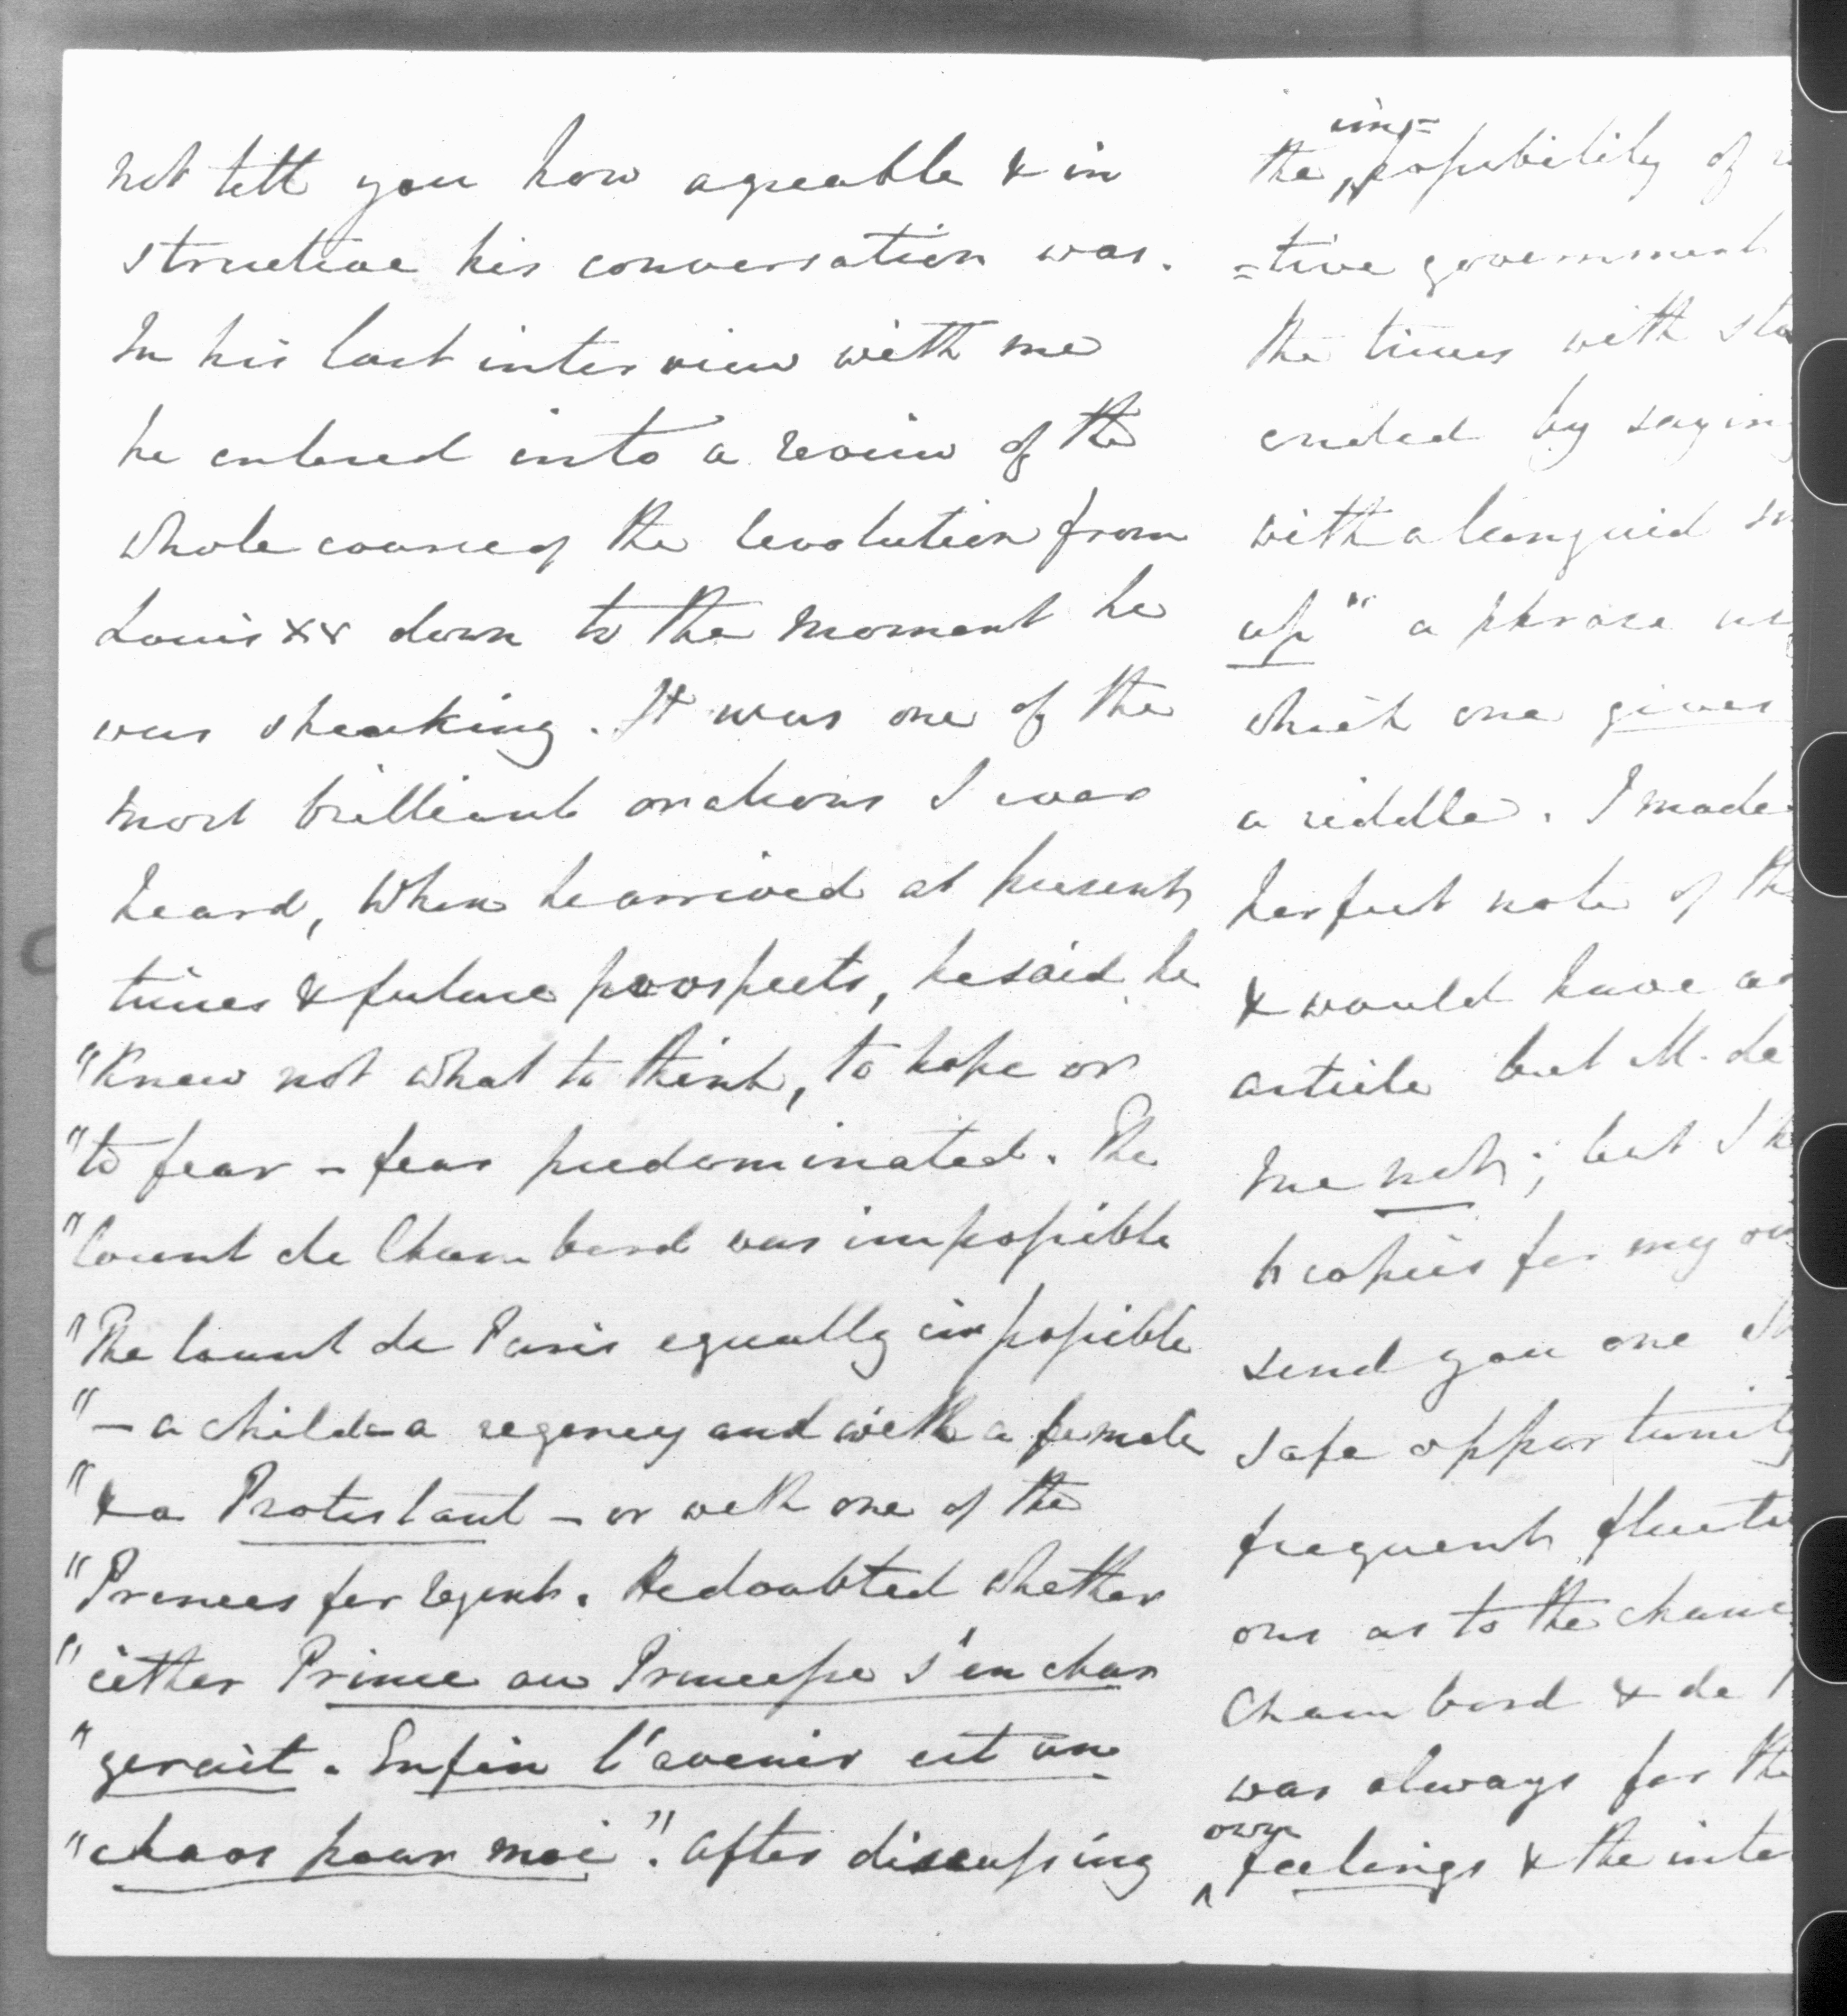 not tell you how agreable & in
structive his conversation was.
In his last interview with me
he entered into a review of the
whole course of the Revolution from
Louis XV down to the moment he
was speaking. It was one of the
most brilliant orations I ever
heard, When he arrived at present
times & future prospects, he said he
"knew not what to think, to hope or
"to fear - fear predominated. The
"Count de Chambord was impossible
"The Count de Paris equally impossible
"- a child - a regency and with a female
"& a Protestant - or with one of the
"Princes for regent. He doubted whether
"either Prince ou Princesse s'en char
"gerait. Enfin l'avenir est un
"chaos pour moi". After discussing
im=
the possibility of
=tive government
the times with
ended by saying
with a languid
up" a phrase
which one gives
a riddle. I made
perfect note of the
& would have
article but M. de
me not; but I
copies for my
send you one
safe opportunity
frequent
ons as to the
Chambord & de
was always for the
own
feelings & the